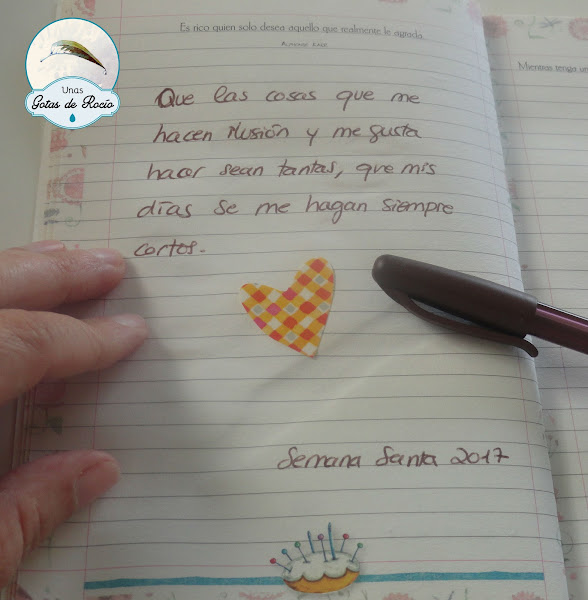 Unas
Gotas de Rocío
Es rico quien solo desea aquello que realmente le agrada.
Mientras tenga
Que las cosas que me
hacen ilusión y me gusta
hacer sean tantas, que mis
días se me hagan siempre
cortos.
Semana Santa 2017